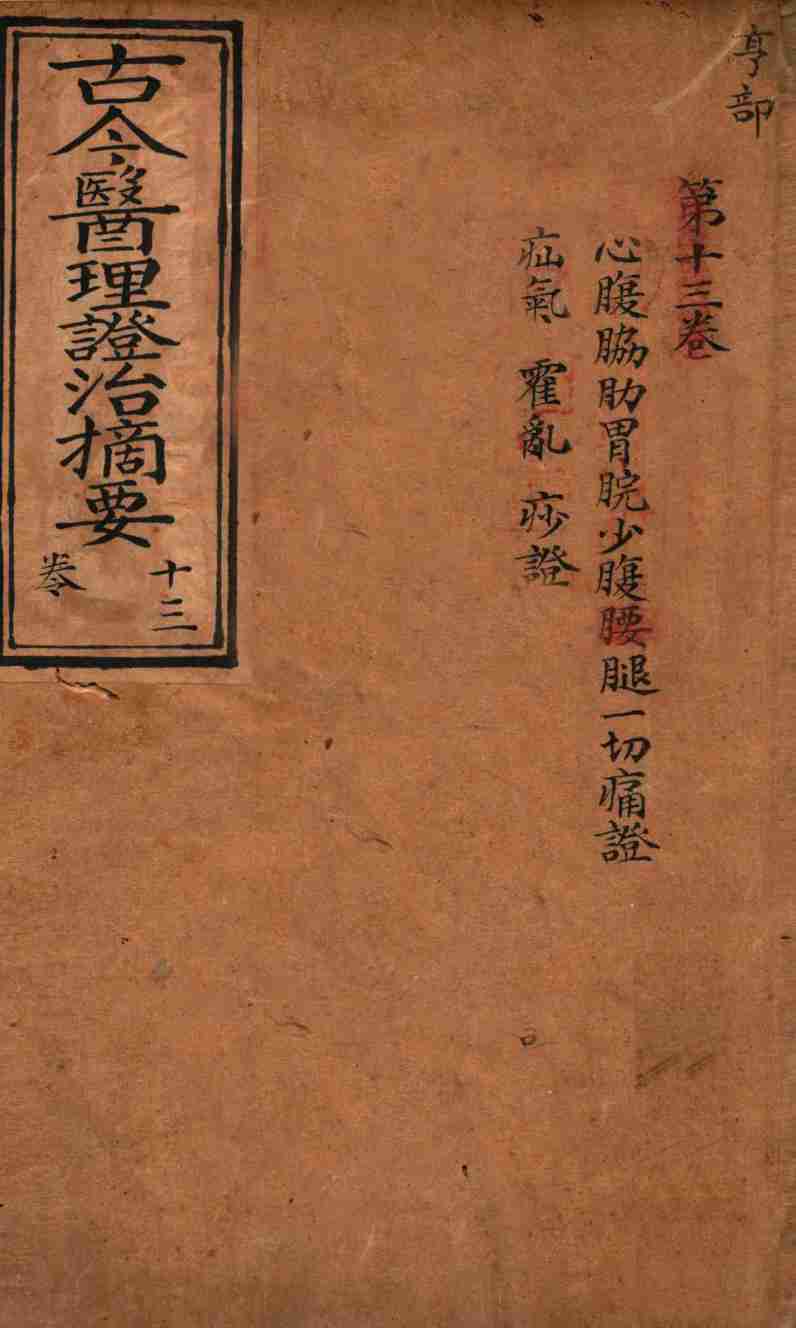 亨部
第十三卷
心腹脇肋胃脘少腹腰腿一切痛證
疝氣 霍亂 痧證
古今醫理證治摘要
十三
卷